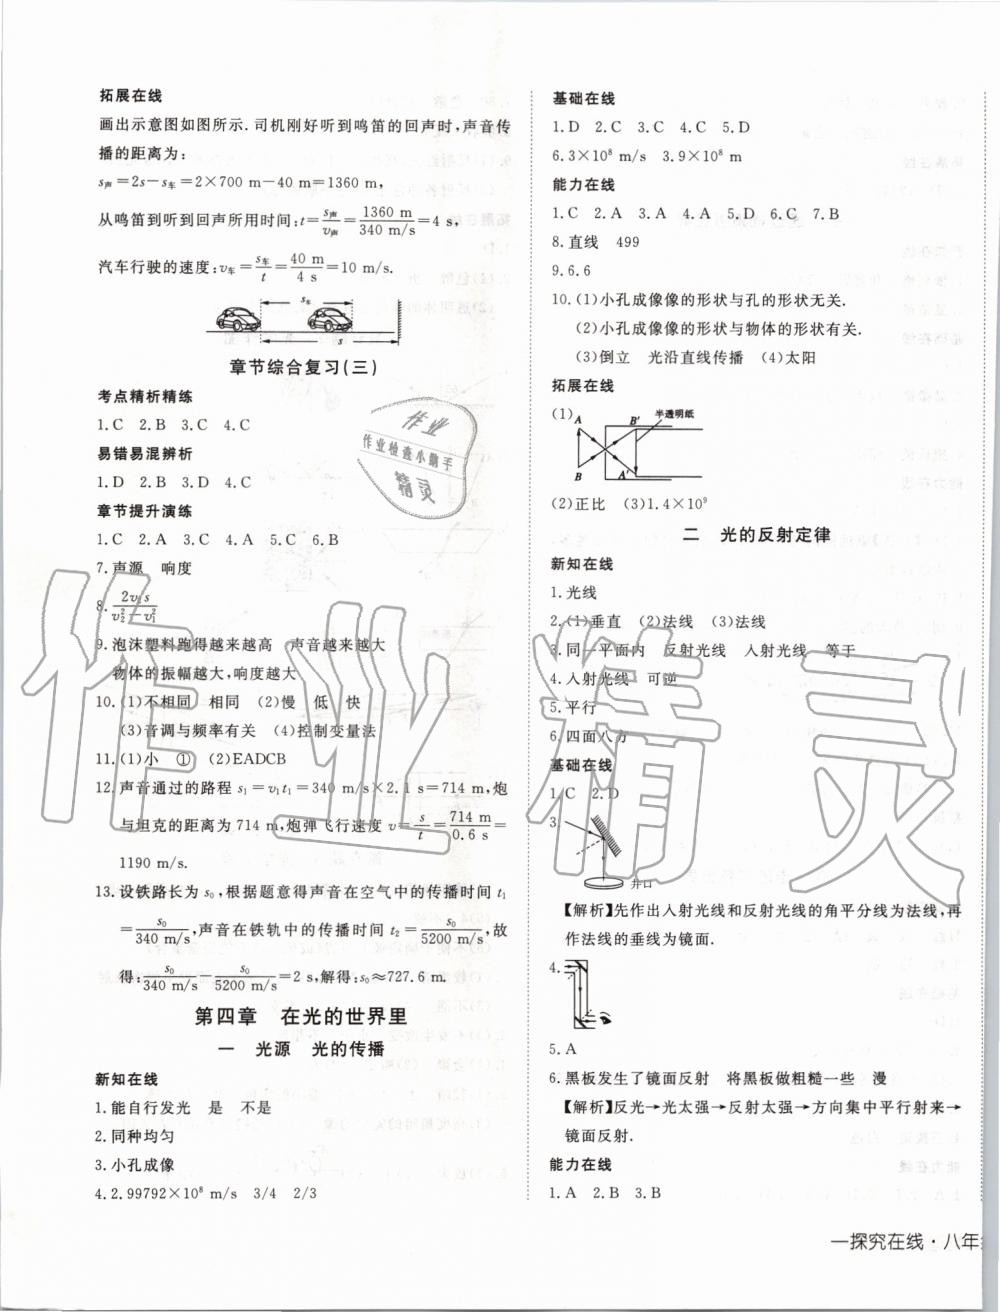 拓展在线
画出示意图如图所示.司机刚好听到鸣笛的回声时,声音传
播的距离为:
s声=2s-s车=2×700 m-40 m=1360 m,
从鸣笛到听到回声所用时间:t=s声/v声=1360 m/340 m/s=4 s,
汽车行驶的速度:v车=s车/t=40 m/4 s=10 m/s.
s车
s
章节综合复习(三)
考点精析精练
1.C 2.B 3.C 4.C
易错易混辨析
1.D 2.B 3.D 4.C
章节提升演练
1.C 2.A 3.C 4.A 5.C 6.B
7.声源 响度
8.2v₁s/v₂²-v₁²
9.泡沫塑料跑得越来越高 声音越来越大
物体的振幅越大,响度越大
10.(1)不相同 相同 (2)慢 低 快
(3)音调与频率有关 (4)控制变量法
11.(1)小 ① (2)EADCB
12.声音通过的路程 s₁=v₁t₁=340 m/s×2.1 s=714 m,炮
与坦克的距离为714 m,炮弹飞行速度 v=s/t=714 m/0.6 s=
1190 m/s.
13.设铁路长为 s₀,根据题意得声音在空气中的传播时间 t₁
=s₀/340 m/s,声音在铁轨中的传播时间 t₂=s₀/5200 m/s,故
得:s₀/340 m/s-s₀/5200 m/s=2 s,解得:s₀≈727.6 m.
第四章 在光的世界里
一 光源 光的传播
新知在线
1.能自行发光 是 不是
2.同种均匀
3.小孔成像
4.2.99792×10⁸ m/s 3/4 2/3
基础在线
1.D 2.C 3.C 4.C 5.D
6.3×10⁸ m/s 3.9×10⁸ m
能力在线
1.C 2.A 3.A 4.A 5.D 6.C 7.B
8.直线 499
9.6.6
10.(1)小孔成像像的形状与孔的形状无关.
(2)小孔成像像的形状与物体的形状有关.
(3)倒立 光沿直线传播 (4)太阳
拓展在线
(1) A B′ 半透明纸
B A′
(2)正比 (3)1.4×10⁹
二 光的反射定律
新知在线
1.光线
2.(1)垂直 (2)法线 (3)法线
3.同一平面内 反射光线 入射光线 等于
4.入射光线 可逆
5.平行
6.四面八方
基础在线
1.C 2.D
3.
井口
【解析】先作出入射光线和反射光线的角平分线为法线,再
作法线的垂线为镜面.
4.
5.A
6.黑板发生了镜面反射 将黑板做粗糙一些 漫
【解析】反光→光太强→反射太强→方向集中平行射来→
镜面反射.
能力在线
1.A 2.B 3.B
一探究在线·八年
作业
作业检查小助手
精灵
作业精灵